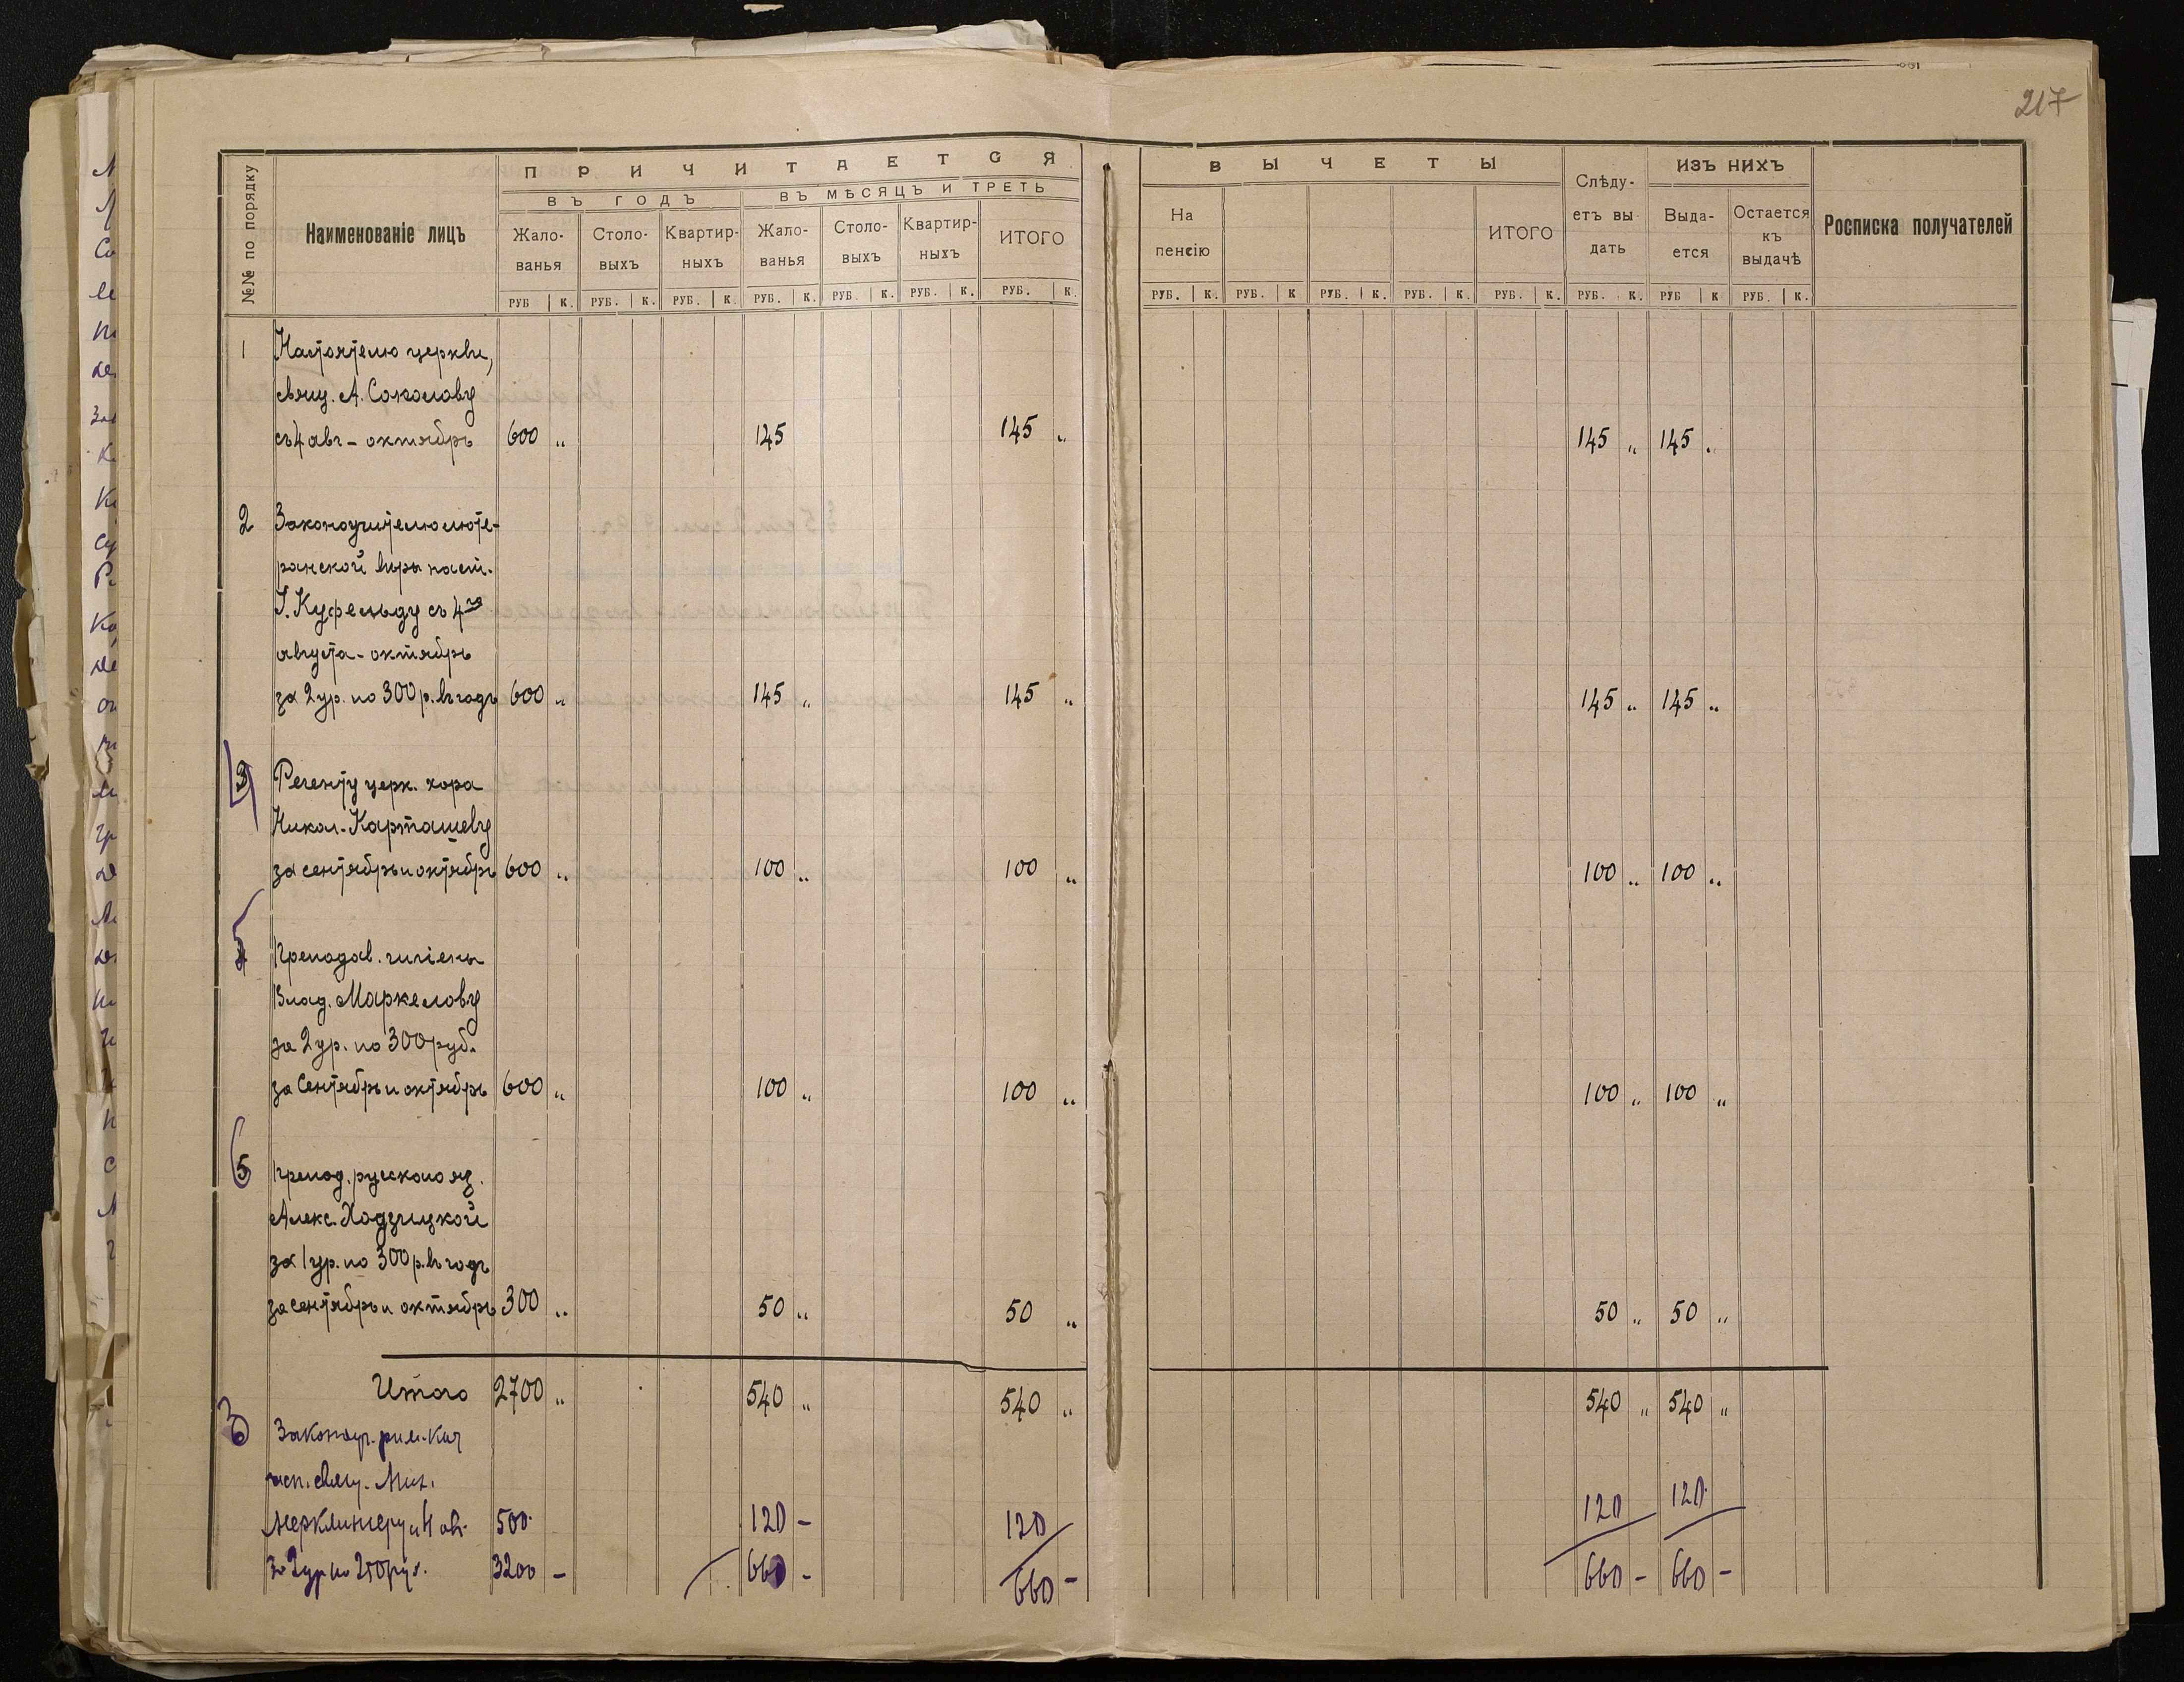 217
№№ по порядку
Наименованіе лицъ
ПРИЧИТАЕТСЯ
ВЪ ГОДЪ
ВЪ МѢСЯЦЪ И ТРЕТЬ
Жало-
ванья
Столо-
выхъ
Квартир-
ныхъ
Жало-
ванья
Столо-
выхъ
Квартир-
ныхъ
ИТОГО
РУБ К. РУБ. К. РУБ. К. РУБ. К. РУБ. К. РУБ. К. РУБ. К.
ВЫЧЕТЫ
На
пенсію
ИТОГО
Слѣду-
етъ вы-
дать
ИЗЪ НИХЪ
Выда-
ется
Остается
къ
выдачѣ
Росписка получателей
РУБ. К. РУБ. К РУБ. К. РУБ. К. РУБ. К. РУБ. К. РУБ К РУБ. К.
1 Настоятелю церкви,
свящ. А. Соколову
съ 4 авг – октябрь 600 „ 145 145 „ 145 „ 145 „
2 Законоучителю люте-
ранской вѣры паст.
Г. Куфельду съ 4го
августа – октябрь
за 2 ур. по 300 р. въ годъ 600 „ 145 „ 145 „ 145 „ 145 „
4 Регенту церк. хора
Никол. Карташеву
за сентябрь и октябрь 600 „ 100 „ 100 „ 100 „ 100 „
5 Преподав. гигіены
Влад. Маркелову
за 2 ур. по 300 руб.
за сентябрь и октябрь 600 „ 100 „ 100 „ 100 „ 100 „
6 Препод. русскаго яз.
Алекс. Ходзицкой
за 1 ур. по 300 р. въ годъ
за сентябрь и октябрь 300 „ 50 „ 50 „ 50 „ 50 „
Итого 2700 „ 540 „ 540 „ 540 „ 540 „
3 Законоуч. рим. кат
исп. свящ. Мих.
Мерклингеру 4 авг. 500 120 – 120 120 120
за 2 ур по 250 руб. 3200 – 660 – 660 – 660 – 660 –